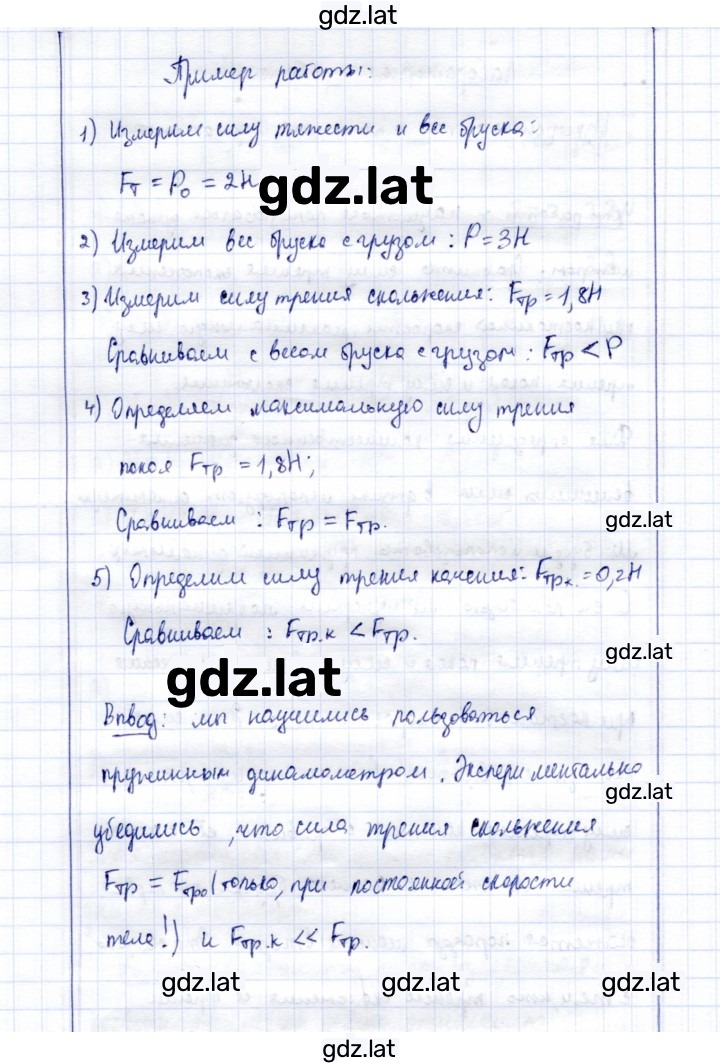 gdz.lat
Пример работы:
1) Измерим силу тяжести и вес бруска:
Fт = P₀ = 2Н
gdz.lat
2) Измерим вес бруска с грузом: P = 3Н
3) Измерим силу трения скольжения: Fтр = 1,8Н
Сравниваем с весом бруска с грузом: Fтр < P
4) Определяем максимальную силу трения
покоя Fтр = 1,8Н;
Сравниваем: Fтр = Fтр.
gdz.lat
5) Определим силу трения качения: Fтр к. = 0,2Н
Сравниваем: Fтр.к < Fтр.
gdz.lat
gdz.lat
Вывод: мы научились пользоваться
пружинным динамометром. Экспериментально
gdz.lat
убедились, что сила трения скольжения
Fтр = Fтр₀ (только, при постоянной скорости
тела!) и Fтр.к << Fтр.
gdz.lat gdz.lat gdz.lat
gdz.lat